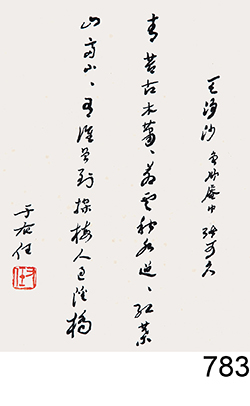 天淨沙 魯卿庵中 張可久
青苔古木蕭、蒼雲秋水迢、紅葉
山齋小、有誰曾到探梅人過溪橋
于右任
右任
783